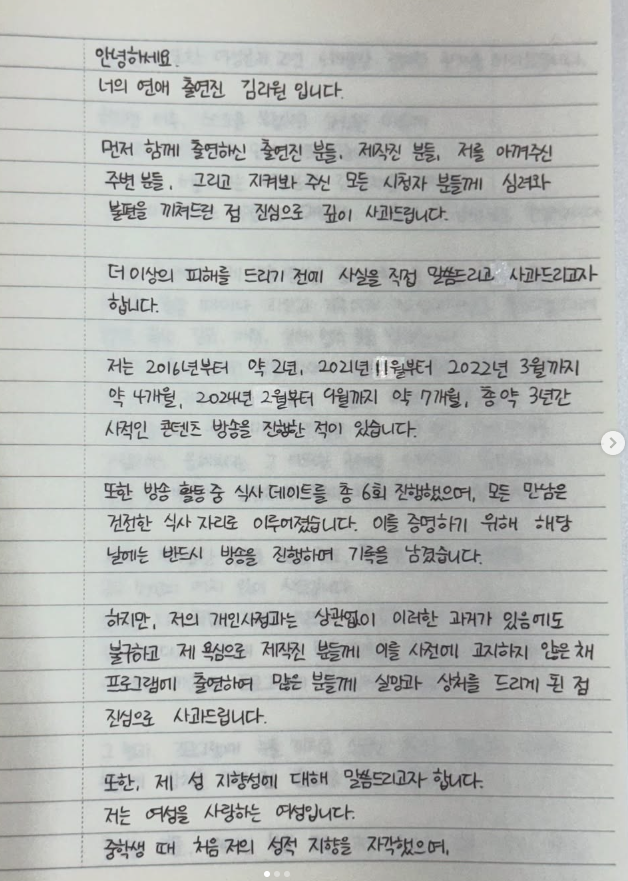 안녕하세요.
너의 연애 출연진 김리원 입니다.
먼저 함께 출연하신 출연진 분들, 제작진 분들, 저를 아껴주신
주변 분들, 그리고 지켜봐 주신 모든 시청자 분들께 심려와
불편을 끼쳐드린 점 진심으로 깊이 사과드립니다.
더 이상의 피해를 드리기 전에 사실을 직접 말씀드리고 사과드리고자
합니다.
저는 2016년부터 약 2년, 2021년 11월부터 2022년 3월까지
약 4개월, 2024년 2월부터 9월까지 약 7개월, 총 약 3년간
사적인 콘텐츠 방송을 진행한 적이 있습니다.
또한 방송 활동 중 식사 데이트를 총 6회 진행했으며, 모든 만남은
건전한 식사 자리로 이루어졌습니다. 이를 증명하기 위해 해당
날에는 반드시 방송을 진행하며 기록을 남겼습니다.
하지만, 저의 개인사정과는 상관없이 이러한 과거가 있음에도
불구하고 제 욕심으로 제작진 분들께 이를 사전에 고지하지 않은 채
프로그램에 출연하여 많은 분들께 실망과 상처를 드리게 된 점
진심으로 사과드립니다.
또한, 제 성 지향성에 대해 말씀드리고자 합니다.
저는 여성을 사랑하는 여성입니다.
중학생 때 처음 저의 성적 지향을 자각했으며,